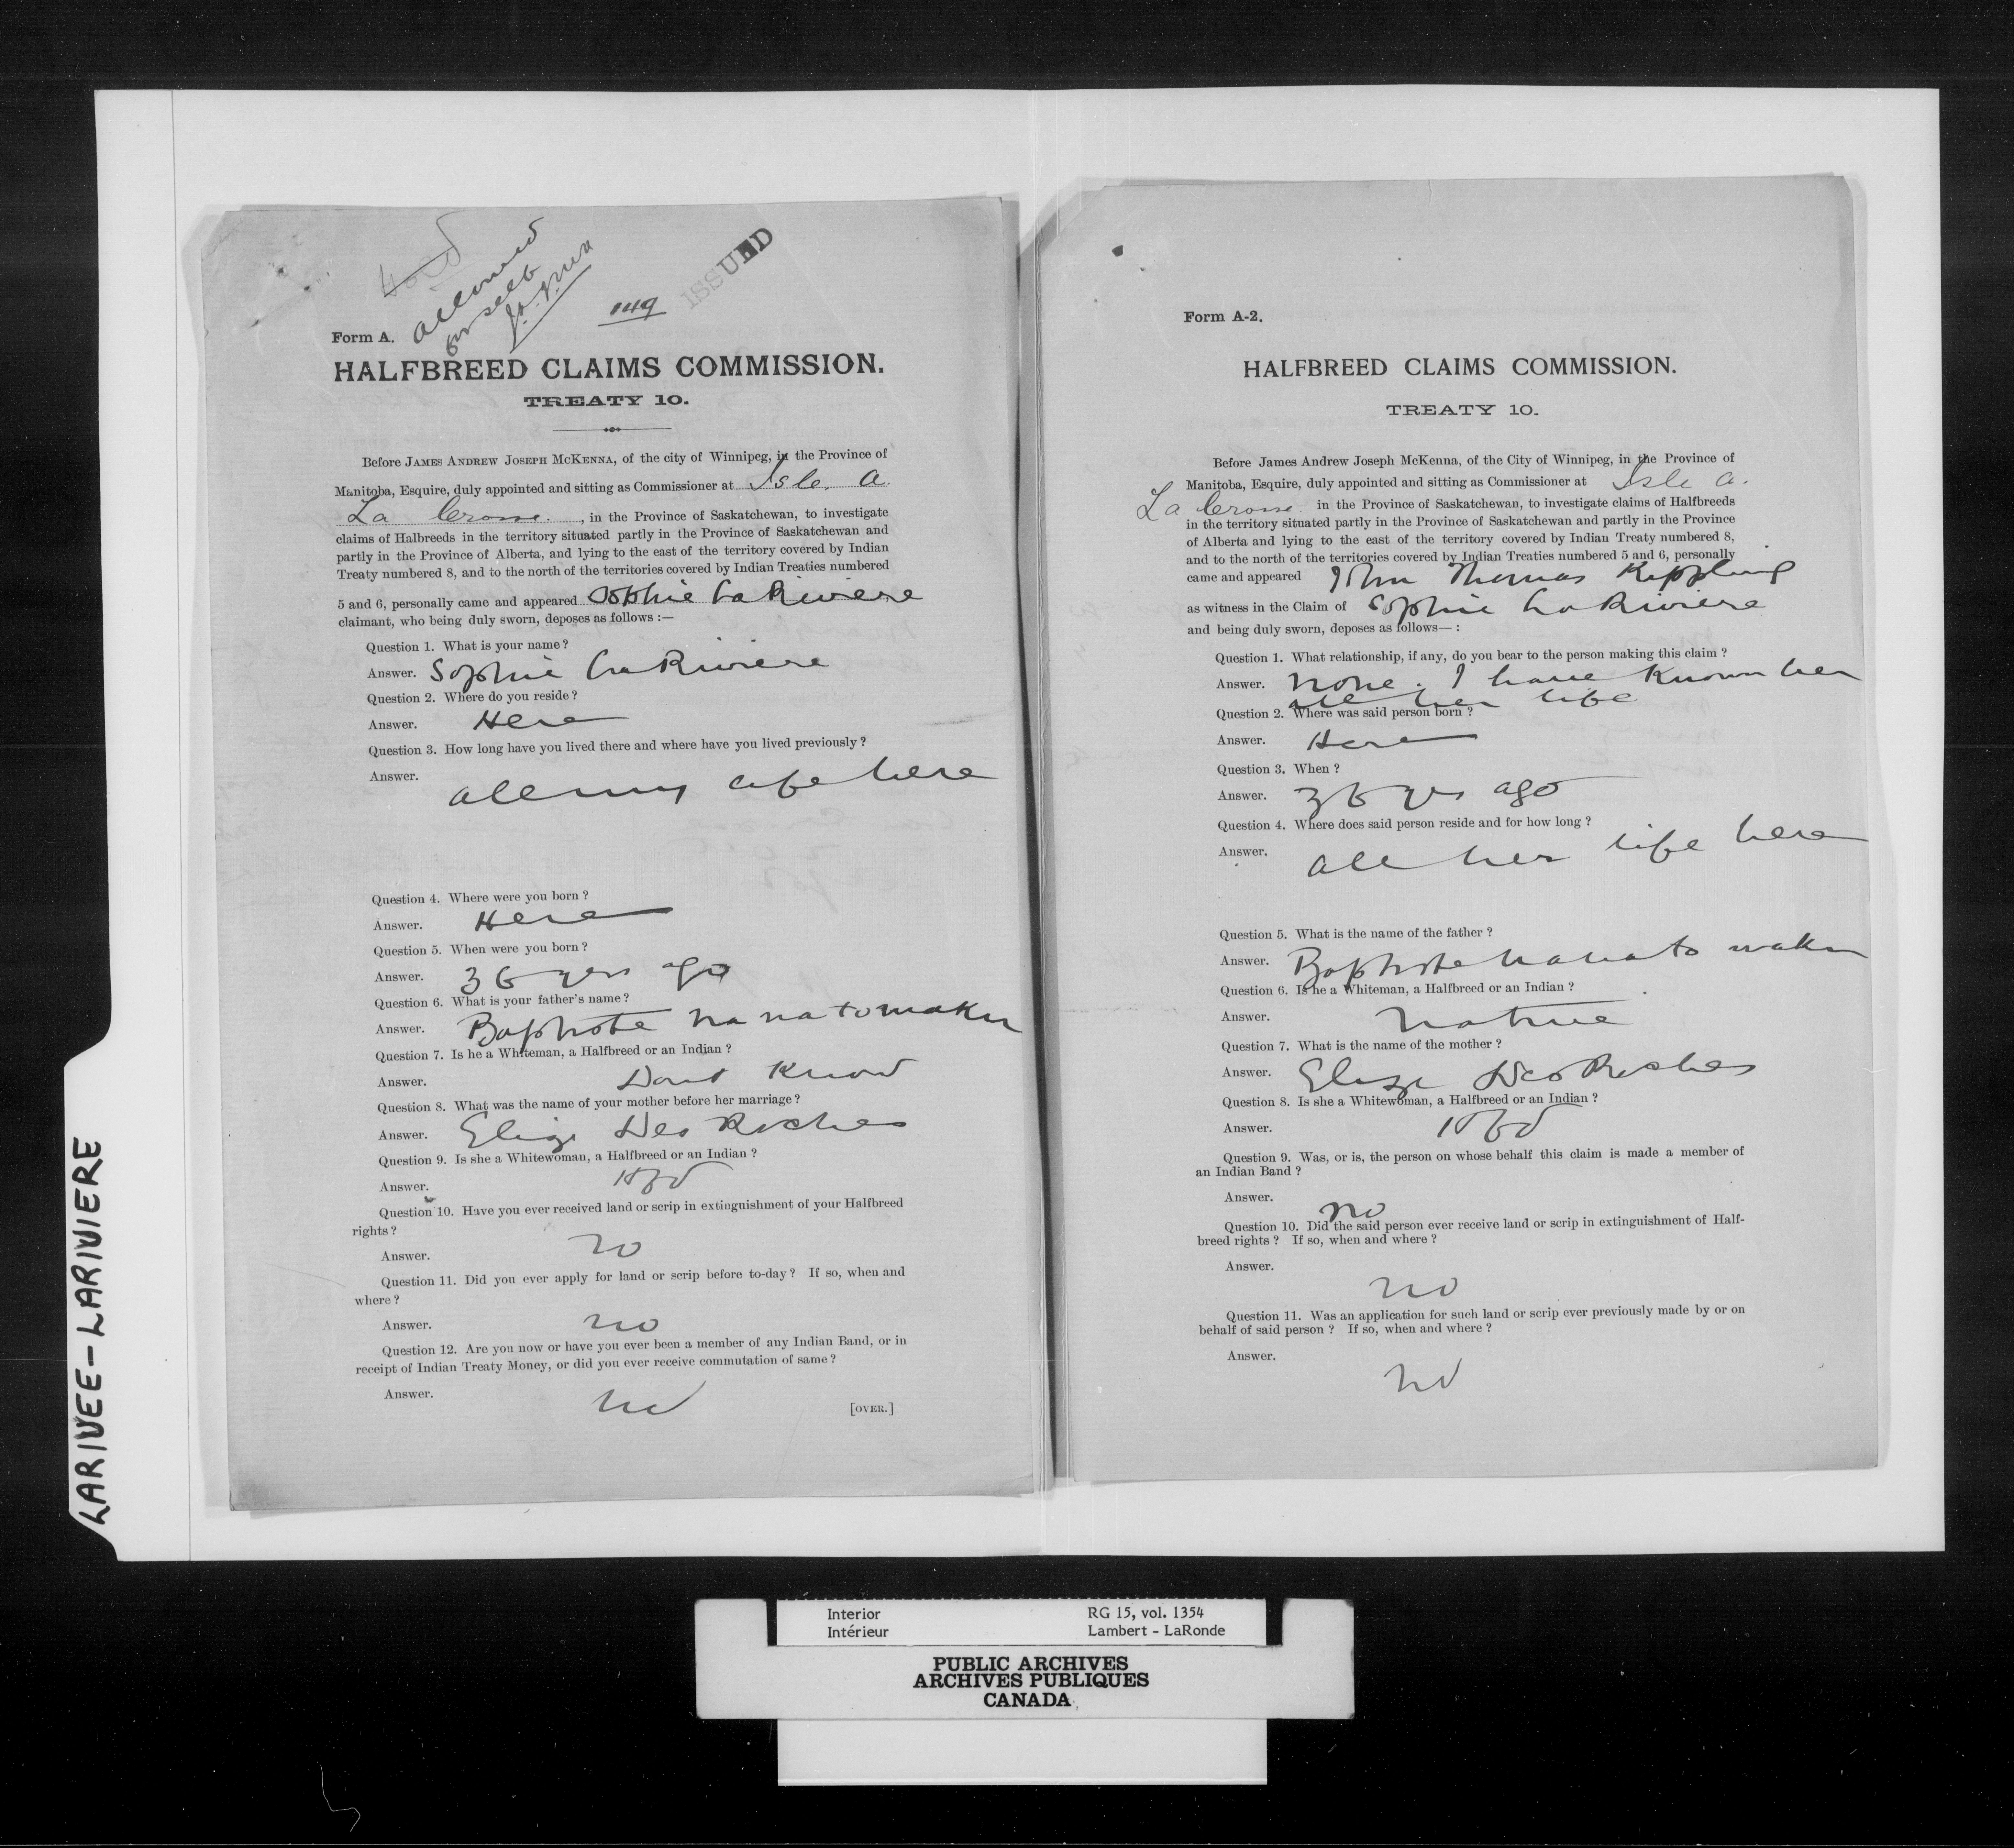 allowed
for self
149
ISSUED
Form A.
HALFBREED CLAIMS COMMISSION.
TREATY 10.
Before JAMES ANDREW JOSEPH MCKENNA, of the city of Winnipeg, in the Province of
Manitoba, Esquire, duly appointed and sitting as Commissioner at Isle. A.
La Crosse. , in the Province of Saskatchewan, to investigate
claims of Halbreeds in the territory situated partly in the Province of Saskatchewan and
partly in the Province of Alberta, and lying to the east of the territory covered by Indian
Treaty numbered 8, and to the north of the territories covered by Indian Treaties numbered
5 and 6, personally came and appeared Sophie LaRiviere
claimant, who being duly sworn, deposes as follows :—
Question 1. What is your name ?
Answer. Sophie LaRiviere
Question 2. Where do you reside ?
Answer. Here
Question 3. How long have you lived there and where have you lived previously ?
Answer. all my life here
Question 4. Where were you born ?
Answer. Here
Question 5. When were you born ?
Answer. 36 yrs ago
Question 6. What is your father's name ?
Answer. Baptiste
Question 7. Is he a Whiteman, a Halfbreed or an Indian ?
Answer. Dont Know
Question 8. What was the name of your mother before her marriage ?
Answer. Eliza Des Roches
Question 9. Is she a Whitewoman, a Halfbreed or an Indian ?
Answer. Hfbd
Question 10. Have you ever received land or scrip in extinguishment of your Halfbreed
rights ?
Answer. no
Question 11. Did you ever apply for land or scrip before to-day ? If so, when and
where ?
Answer. no
Question 12. Are you now or have you ever been a member of any Indian Band, or in
receipt of Indian Treaty Money, or did you ever receive commutation of same ?
Answer. no
[OVER.]
Form A-2.
HALFBREED CLAIMS COMMISSION.
TREATY 10.
Before James Andrew Joseph McKenna, of the City of Winnipeg, in the Province of
Manitoba, Esquire, duly appointed and sitting as Commissioner at Isle a.
La Crosse in the Province of Saskatchewan, to investigate claims of Halfbreeds
in the territory situated partly in the Province of Saskatchewan and partly in the Province
of Alberta and lying to the east of the territory covered by Indian Treaty numbered 8,
and to the north of the territories covered by Indian Treaties numbered 5 and 6, personally
came and appeared John Thomas Kippling
as witness in the Claim of Sophie LaRiviere
and being duly sworn, deposes as follows— :
Question 1. What relationship, if any, do you bear to the person making this claim ?
Answer. none. I have Known her
all her life
Question 2. Where was said person born ?
Answer. Here
Question 3. When ?
Answer. 36 yrs ago
Question 4. Where does said person reside and for how long ?
Answer. all her life here
Question 5. What is the name of the father ?
Answer. Baptiste
Question 6. Is he a Whiteman, a Halfbreed or an Indian ?
Answer. native
Question 7. What is the name of the mother ?
Answer. Eliza Des Roches
Question 8. Is she a Whitewoman, a Halfbreed or an Indian ?
Answer. Hfbd
Question 9. Was, or is, the person on whose behalf this claim is made a member of
an Indian Band ?
Answer. no
Question 10. Did the said person ever receive land or scrip in extinguishment of Half-
breed rights ? If so, when and where ?
Answer. no
Question 11. Was an application for such land or scrip ever previously made by or on
behalf of said person ? If so, when and where ?
Answer. no
LARIVEE - LARIVIERE
Interior RG 15, vol. 1354
Intérieur Lambert - LaRonde
PUBLIC ARCHIVES
ARCHIVES PUBLIQUES
CANADA